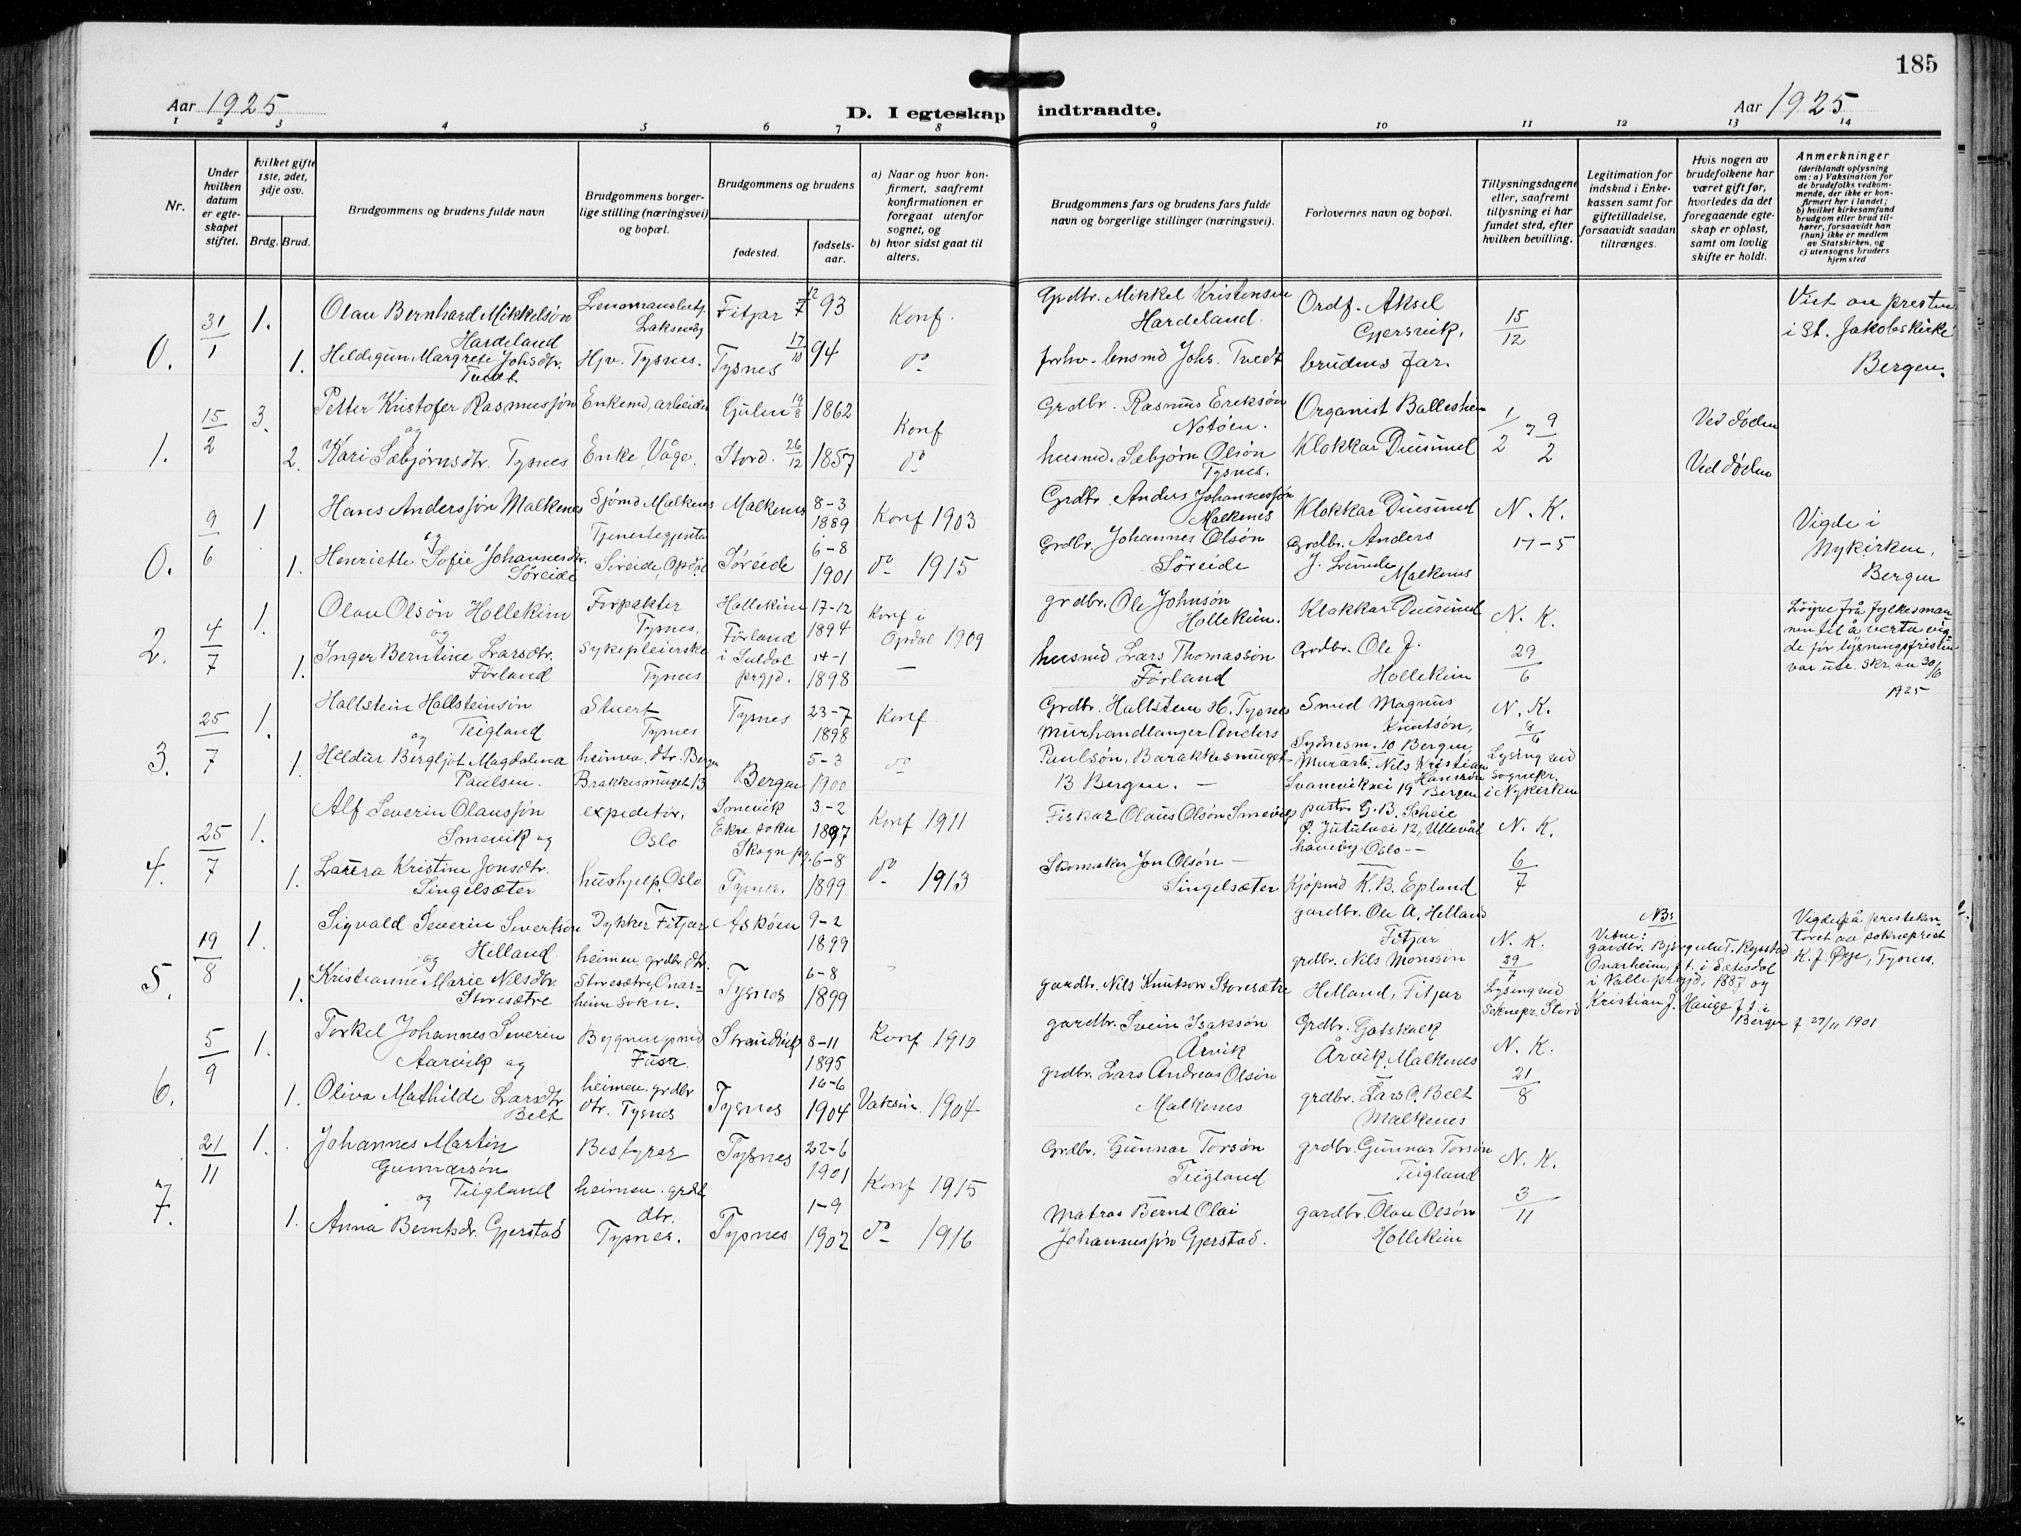 185
Aar 1925
D. I egteskap indtraadte.
Aar 1925
1 2 3 4 5 6 7 8 9 10 11 12 13 14
Nr.
Under hvilken datum er egteskapet stiftet.
hvilket gifte 1ste, 2det, 3dje osv.
Brdg. Brud.
Brudgommens og brudens fulde navn
Brudgommens borgerlige stilling (næringsvei) og bopæl.
Brudgommens og brudens
fødested.
fødselsaar.
a) Naar og hvor konfirmert, saafremt konfirmationen er foregaat utenfor sognet, og
b) hvor sidst gaat til alters.
Brudgommens fars og brudens fars fulde navn og borgerlige stillinger (næringsvei).
Forlovernes navn og bopæl.
Tillysningsdagene eller, saafremt tillysning ei har fundet sted, efter hvilken bevilling.
Legitimation for indskud i Enkekassen samt for giftetilladelse, forsaavidt saadan tiltrænges.
Hvis nogen av brudefolkene har været gift før, hvorledes da det foregaaende egteskap er opløst, samt om lovlig skifte er holdt.
Anmerkninger (deriblandt oplysning om: a) Vaksination for de brudefolks vedkommende, der ikke er konfirmert her i landet; b) hvilket kirkesamfund brudgom eller brud tilhører, forsaavidt han (hun) ikke er medlem av Statskirken, og c) utensogns bruders hjemsted
0. 31/1 1. Olau Bernhard Mikkelsøn Hardeland
Laksevåg Fitjar 12/7 93 Konf.
Grdbr. Mikkel Kristensen Hardeland.
Ordf. Aksel Gjersvik, 15/12
Viet av presten i St. Jakobskirke Bergen.
1. Heldigun Margrete Johsdtr. Tvedt
Hjv. Tysnes. Tysnes 17/10 94 do
forhv. lensmd Johs. Tvedt brudens far.
1. 15/2 3. Petter Kristofer Rasmussøn og
Enkemd, arbeider Gulen 19/8 1862 Konf
Grdbr. Rasmus Eriksøn Notøen.
Organist Ballesheim 1/2 9/2 Ved døden
2. Kari Sæbjørnsdtr. Tysnes
Enke, Våge. Stord. 26/12 1857 do
husmd. Sæbjørn Olsøn Tysnes.
Klokkar Duesund Ved døden
0. 9/6 1 Hans Anderssøn Malkenes og
Sjømd Malkenes Malkenes 8-3 1889 Konf 1903
Grdbr. Anders Johannessøn Malkenes
Klokkar Duesund N. K. 17-5
Vigde i Nykirken, Bergen
1. Henriette Sofie Johannesdtr. Søreide
Tjenestegjenta Søreide, Opdal Søreide 6-8 1901 do 1915
Grdbr. Johannes Olsøn Søreide
Grdbr. Anders J. Lunde Malkenes
2. 4/7 1. Olau Olsøn Hollekim og
Forpakter Tysnes, Hollekim 17-12 1894 Konf i Opdal 1909
grdbr. Ole Johnsøn Hollekim.
Klokkar Duesund N. K. 29/6
Løyve frå fylkesmannen til å verta vigde før lysningsfristen var ute. Skr. av 30/6 1925
1. Inger Berntine Larsdtr. Førland
Sykepleierske Tysnes Førland i Suldal prgjd. 14-1 1898 —
husmd Lars Thomassøn Førland
Grdbr. Ole J. Hollekim
3. 25/7 1. Hallstein Hallsteinsøn Teigland og
Stuert Tysnes Tysnes 23-7 1898 Konf.
Grdbr. Hallstein H. Tysnes
Smed Magnus Knutsøn, Sydnesm. 10 Bergen, N. K.
1. Hildur Bergljot Magdalena Paulsen.
heimev. dtr. Bergen Brakkesmuget 13 Bergen 5-3 1900 do
Murhandlanger Anders Paulsøn, Barakkesmuget 13 Bergen. —
Murarb. Nils Kristian Hansøn Svanevikvei 19 Bergen
Lysing ved sognepr. i Nykirken
4. 25/7 1. Alf Severin Olaussøn Smevik og
expeditør, Oslo Smevik Ekne sokn Skogn pg. 3-2 1897 Konf 1911
Fiskar Olaus Olsøn Smevik
pastor G. B. Scheie Ø. Jutulvei 12, Ullevål haveby Oslo — N. K. 6/7
1. Laura Kristine Jonsdtr. Singelsæter
hushjelp. Oslo Tysnes. 6-8 1899 do 1913
Skomaker Jon Olsøn — Singelsæter
Kjøpmd K. B. Epland
5. 19/8 1. Sigvald Severin Sivertsøn Helland. og
Dykker Fitjar Askøen 9-2 1899
gardbr. Ole A. Helland Fitjar N. K. 29/7
NB: Vitne: gardbr. Bjørgulv T. Rysstad Onarheim, f.t. i Sætesdal i Valle prgjd. 1887 og Kristian J. Hauge f.t. i Bergen f 27/11 1901
Vigde på prestekontoret av sokneprest K. J. Øye, Tysnes.
1. Kristianne Marie Nilsdtr. Storesætre
heimev. grdbr. dtr. Storesætre, Onarheim sokn. Tysnes 6-8 1899
gardbr. Nils Knutson Storesætre
grdbr. Nils Monssøn Helland, Fitjar
Lysing ved soknepr. Stord
6. 5/9 1. Torkel Johannes Severin Aarvik og
Bygningsmd Fusa. Strandvik 8-11 1895 Konf 1910
gardbr. Svein Isaksøn Årvik
Grdbr. Gotskalk Årvik, Malkenes N. K. 21/8
1. Oliva Mathilde Larsdtr Belt
heimev. grdbr dtr. Tysnes Tysnes 16-6 1904 Vaksin. 1904
grdbr. Lars Andreas Olsøn Malkenes
grdbr. Lars O. Belt Malkenes
7. 21/11 1. Johannes Martin Gunnarsøn Teigland og
Bestyrer Tysnes 22-6 1901 Konf 1915
Grdbr. Gunnar Torsøn Teigland
grdbr. Gunnar Torsøn Teigland N. K. 3/11
1. Anna Berntsdr. Gjerstad
heimev. grdbr dtr. Tysnes. Tysnes 1-9 1902 do 1916
Matros Bernt Olai Johannessøn Gjerstad.
gardbr. Olau Olsøn Hollekim